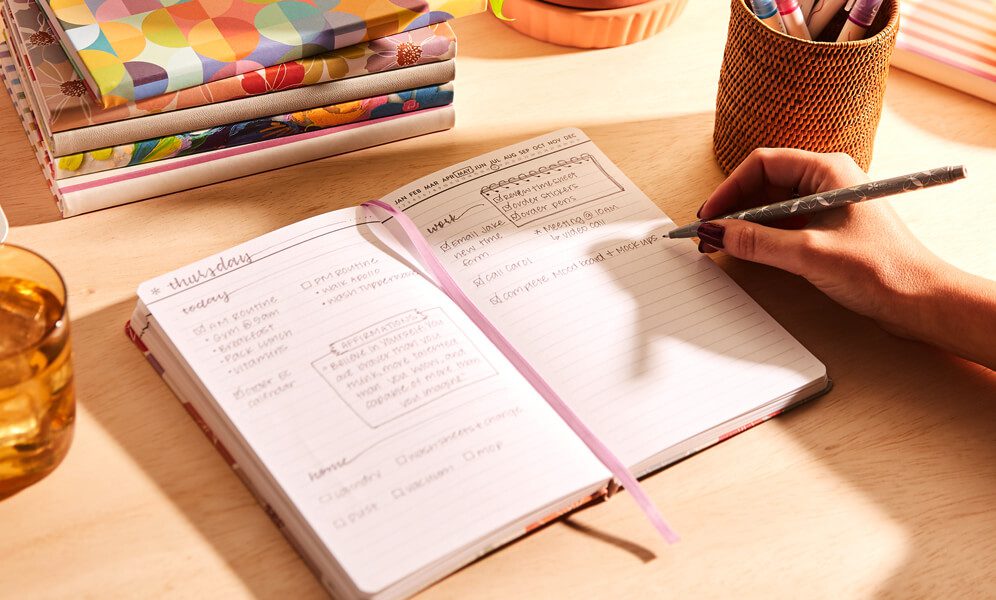 * thursday
today
☑ AM ROUTINE
• Gym @ 9am
• Breakfast
• Pack lunch
• Vitamins
☑ Order EC
calendar
☐ PM ROUTINE
• Walk Apollo
• Wash Tupperware
AFFIRMATIONS
"Believe in yourself. You
are braver than you
think, more talented
than you know, and
capable of more than
you imagine."
home
☐ Laundry
☐ Wash sheets + change
☐ Vacuum
☐ Mop
☐ Dust
JAN FEB MAR APR MAY JUN JUL AUG SEP OCT NOV DEC
work
☑ Review time sheet
☑ Order stickers
☑ Order pens
☑ Email Jake
new time
form
* Meeting @ 10AM
↳ video call
☑ Call Carol
☑ Complete Mood board + MOCKUPS